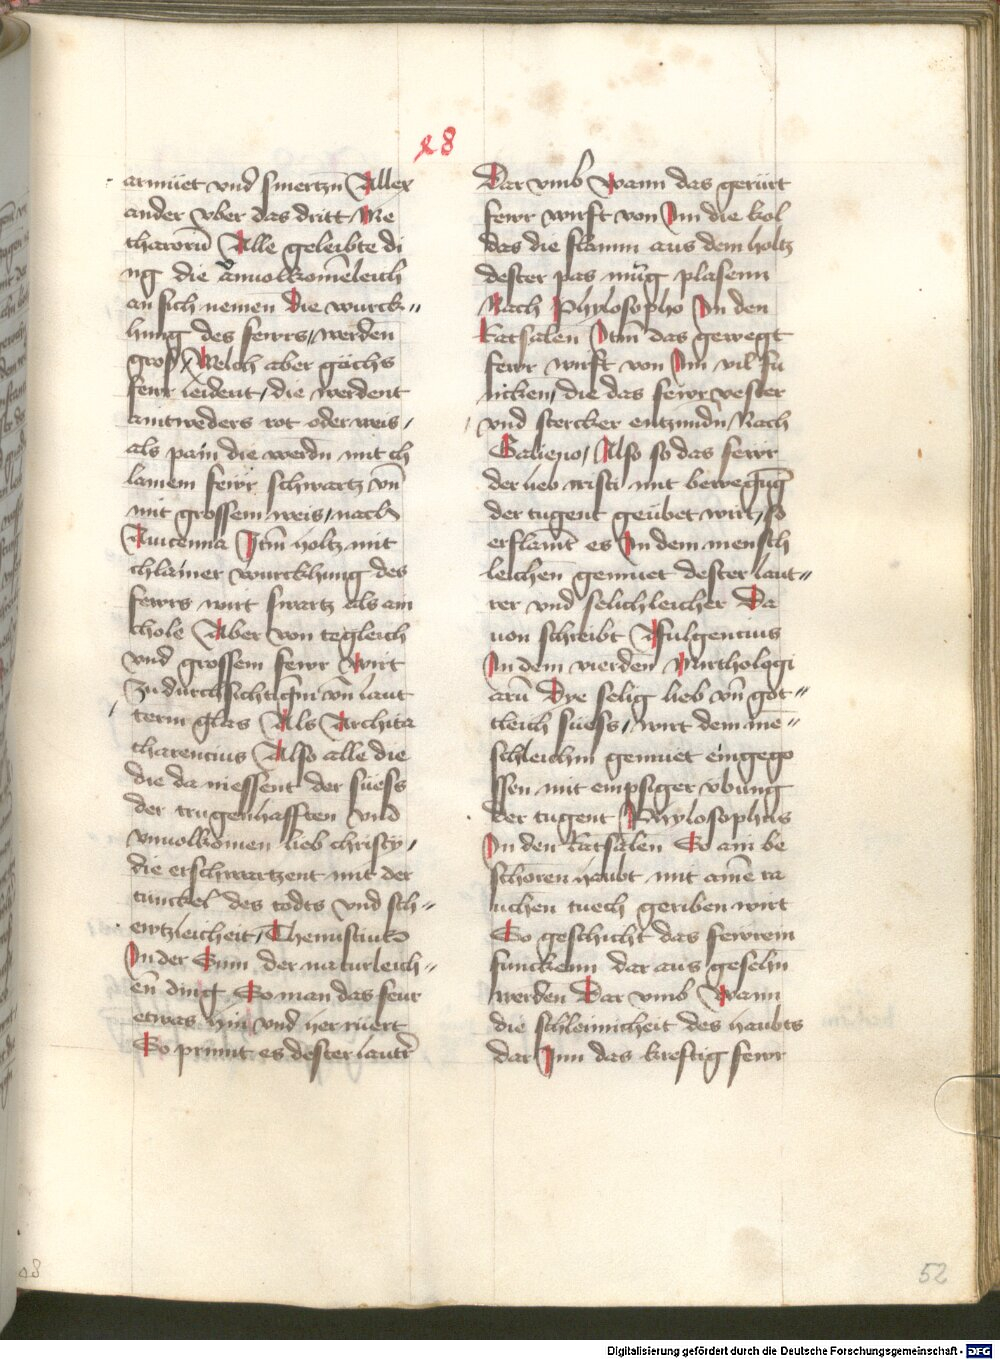 48
armüet vnd smertzn Allex
ander vber das dritt Me
thaorū Alle geleibte di
ng die vnuolkomēleich
an sich nemen Die wurck„
hung des fewrs / werden
gros Welch aber gächs
fewr leident / die werdent
aintweders rot oder weis /
als pain die werdn mit ch
lainem fewr schwartz vn̄
mit grossem weis / nach
Auicenna Itm̄ holtz mit
chlainer wurckhung des
fewrs wirt swartz als ain
chole Aber von tegleich
vnd grossem fewr Wirt
zu durchsichtigm vn̄ laut
term glas Als Archita
tharencius Also alle die
die da niessent der süess
der trugenhafften vnd
vnuolkomen lieb christy /
die erschwartzent mit der
tunckel des todts vnd sch„
ertzleicheit / Themistius
In der Sum der naturleich„
en ding So man das feur
etwas hin vnd her rüert
So prinnt es dester lautr
Dar vmb Wann das gerürt
fewr wirft von Im die kol
das die flamm aus dem holtz
dester pas müg plasenn
Nach Phylosopho In den
katsalen Itm̄ das gewegt
fewr wirft von Im vil fu
ncken / die das fewr vester
vnd stercker entzundn / Nach
Galieno / Also so das fewr
der lieb cristi mit bewegūg
der tugent geübet wirt / so
erflamt es In dem mensch
leichen gemuet dester laut„
rer vnd selichleicher Da
uon schreibt Afulgencius
In dem vierden Mirthologi
arū Dye selig lieb vn̄ got„
tleich süess / wirt dem mē„
schleichn gemuet eingego
ssen mit empsiger vbung
der tugent Phylosophus
In den katsalen So ain be
schoren haubt mit aimē ra
uchen tuech geriben wirt
So geschicht das fewrein
funckenn dar aus gesehn
werden Dar vmb Wann
die schleimicheit des haubts
dar Inn das kreftig fewr
52
Digitalisierung gefördert durch die Deutsche Forschungsgemeinschaft - DFG